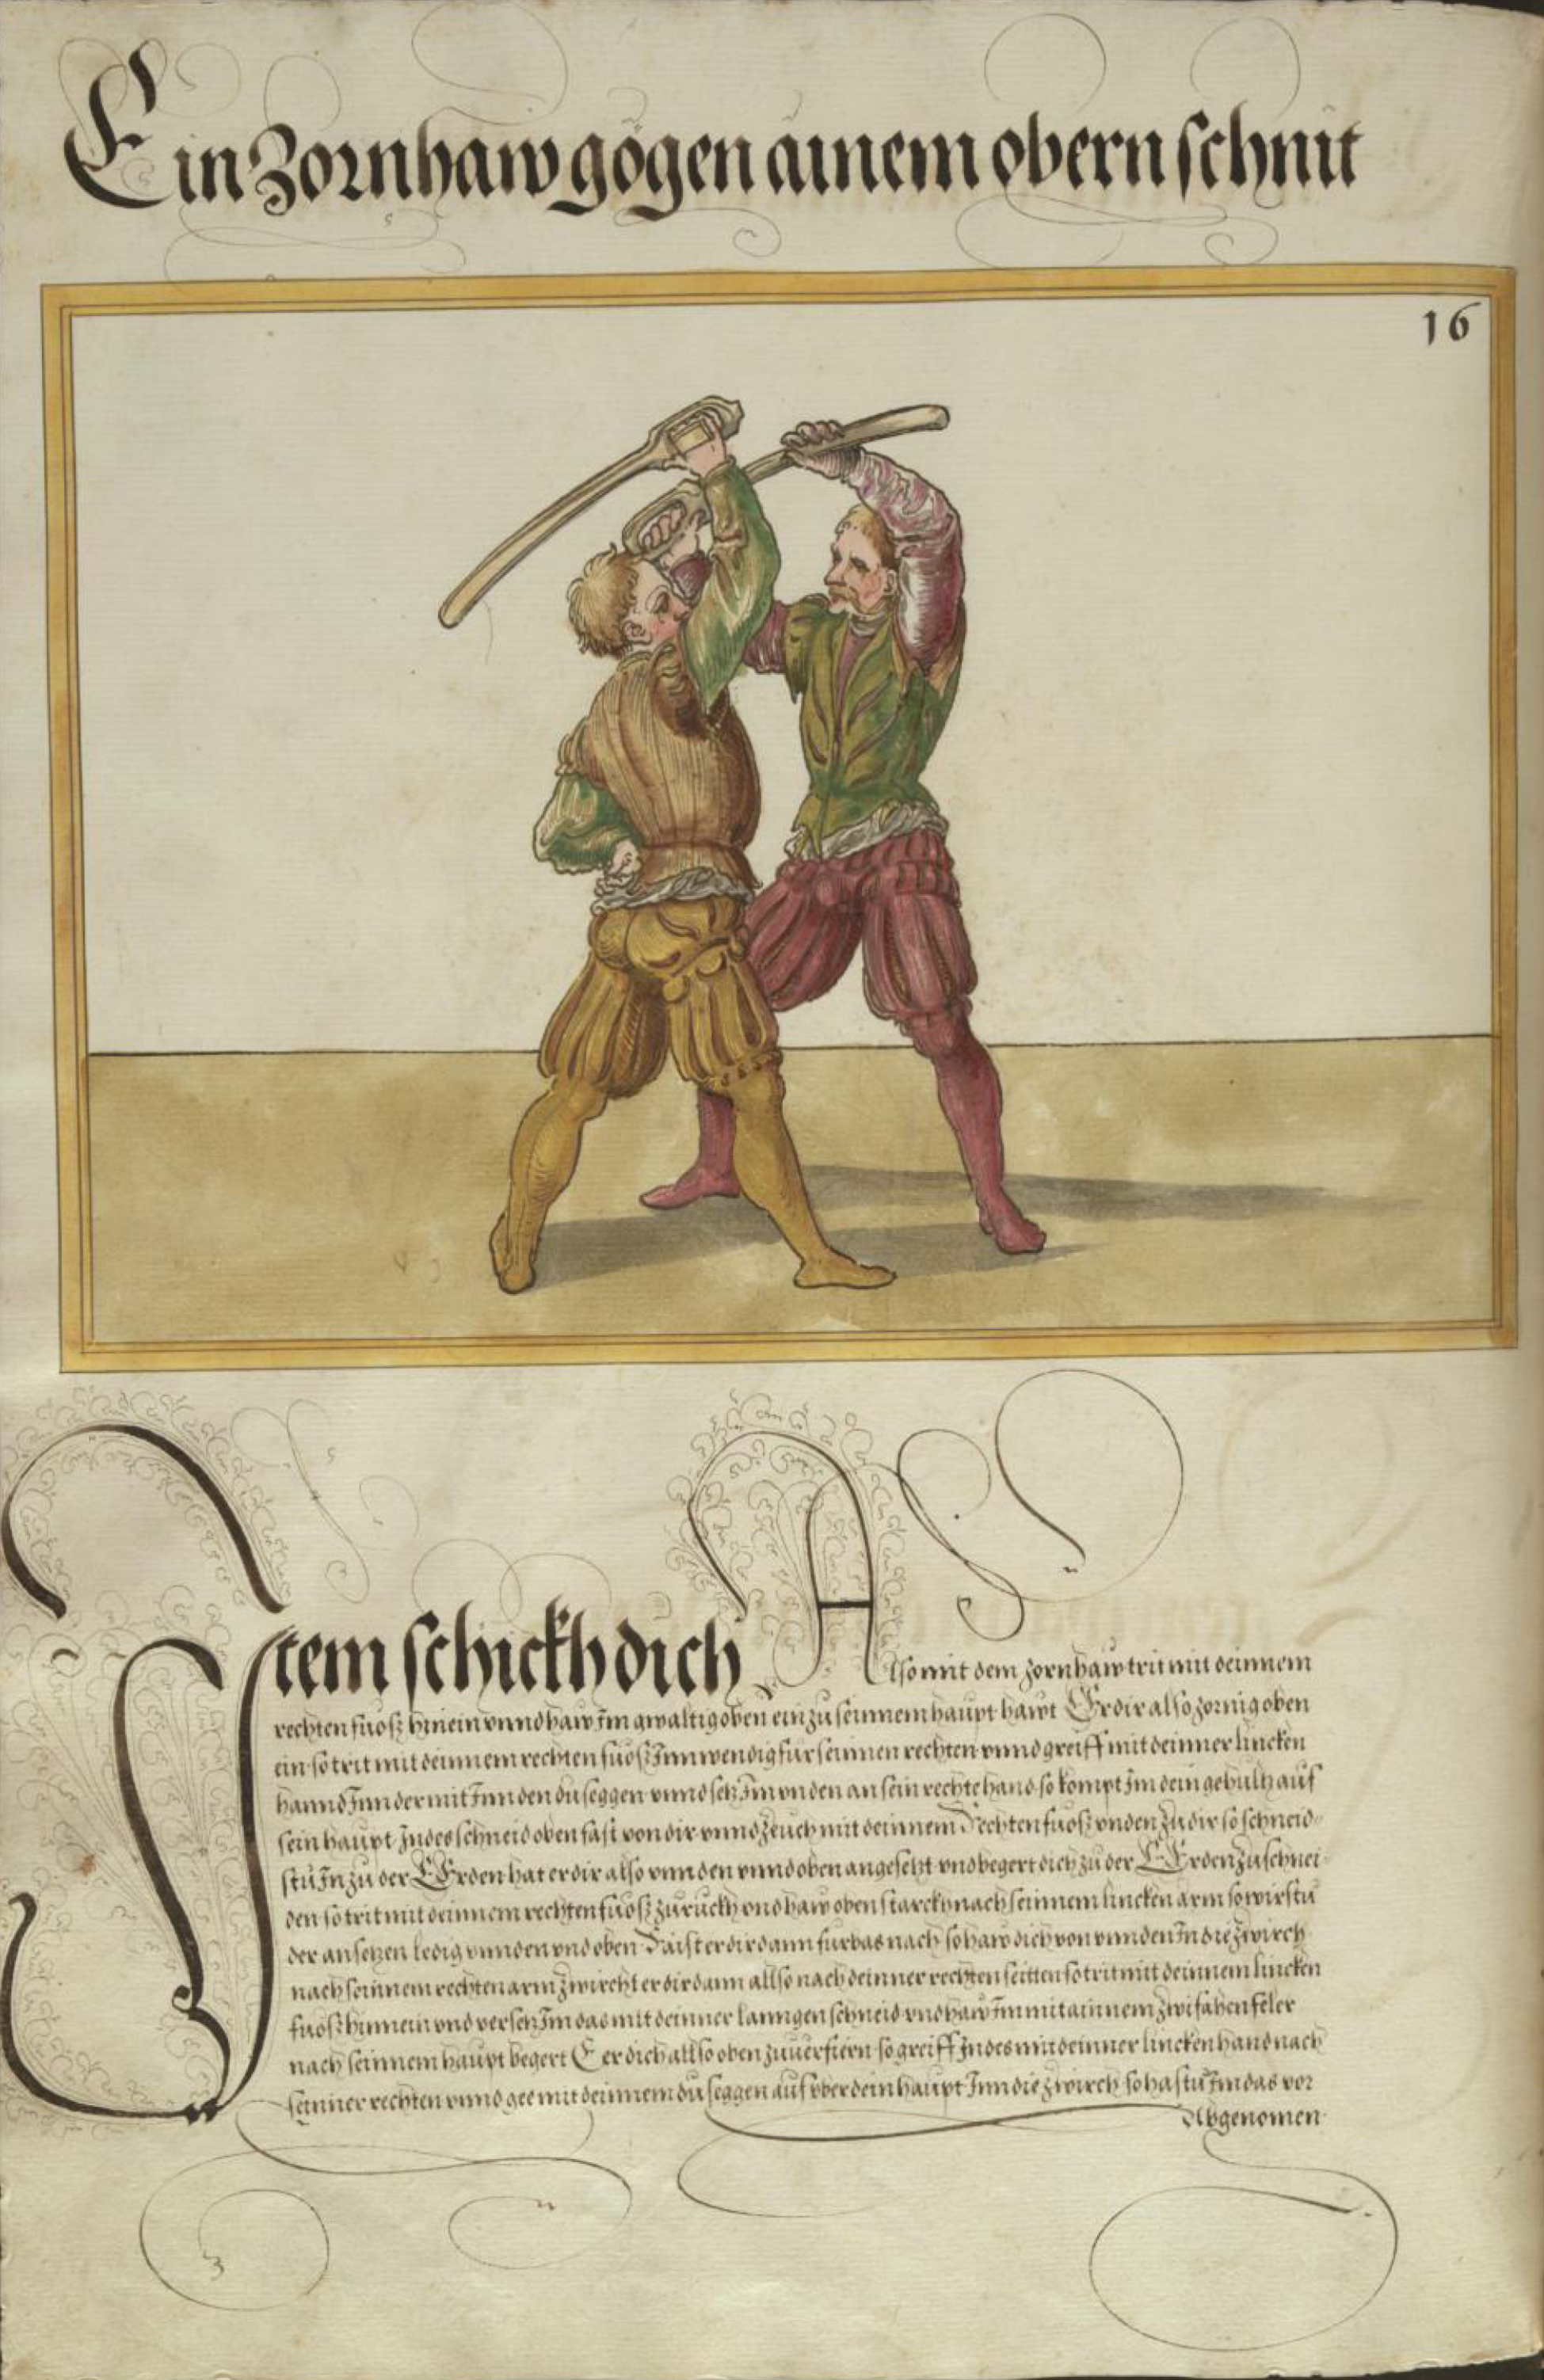 Ein Zornhaw gögen ainem obern schnit
16
Item schickh dich Also mit dem zornhaw trit mit deinnem
rechten fuosz hinein vnnd haw Im gwaltig oben ein zu seinnem haupt hawt Er dir also zornig oben
ein so trit mit deinnem rechten fuosz Innwendig für seinnen rechten vnnd greiff mit deinner lincken
hannd Inn der mit Inn den duseggen vnnd setz Im vnden an sein rechte hand so kompt Im dein gehultz auf
sein haupt Indes schneid oben fast von dir vnnd zeuch mit deinnem Rechten fuosz vnden zu dir so schneid
stu In zu der Erden hat er dir also vnnden vnnd oben angesetzt vnd begert dich zu der Erden zu schnei
den so trit mit deinnem rechten fuosz zuruckh vnd haw oben starckh nach seinnem lincken arm so wirstu
der ansetzen ledig vnnden vnd oben Raist er dir dann furbas nach so haw dich von vnnden In die zwirch
nach seinnem rechten arm zwircht er dir dann allso nach deinner rechten seitten so trit mitt deinnem lincken
fuosz hinnein vnd versetz Im das mit deinner lanngen schneid vnd haw Im mit ainnem zwifahen feler
nach seinnem haupt begert Er dich allso oben zuuerfiern so greiff Indes mit deinner lincken hand nach
seinner rechten vnnd gee mit deinnem duseggen auf vber dein haupt Inn die zwirch so hastu Im das vor
Abgenomen